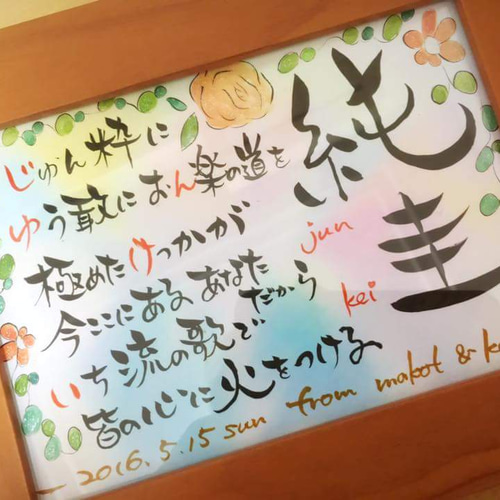 純圭
jun
kei
じゅん粋に
ゆう敢におん楽の道を
極めたけっかが
今ここにあるあなた
だから
いち流の歌で
皆の心に火をつける
2016.5.15 sun from makot & k